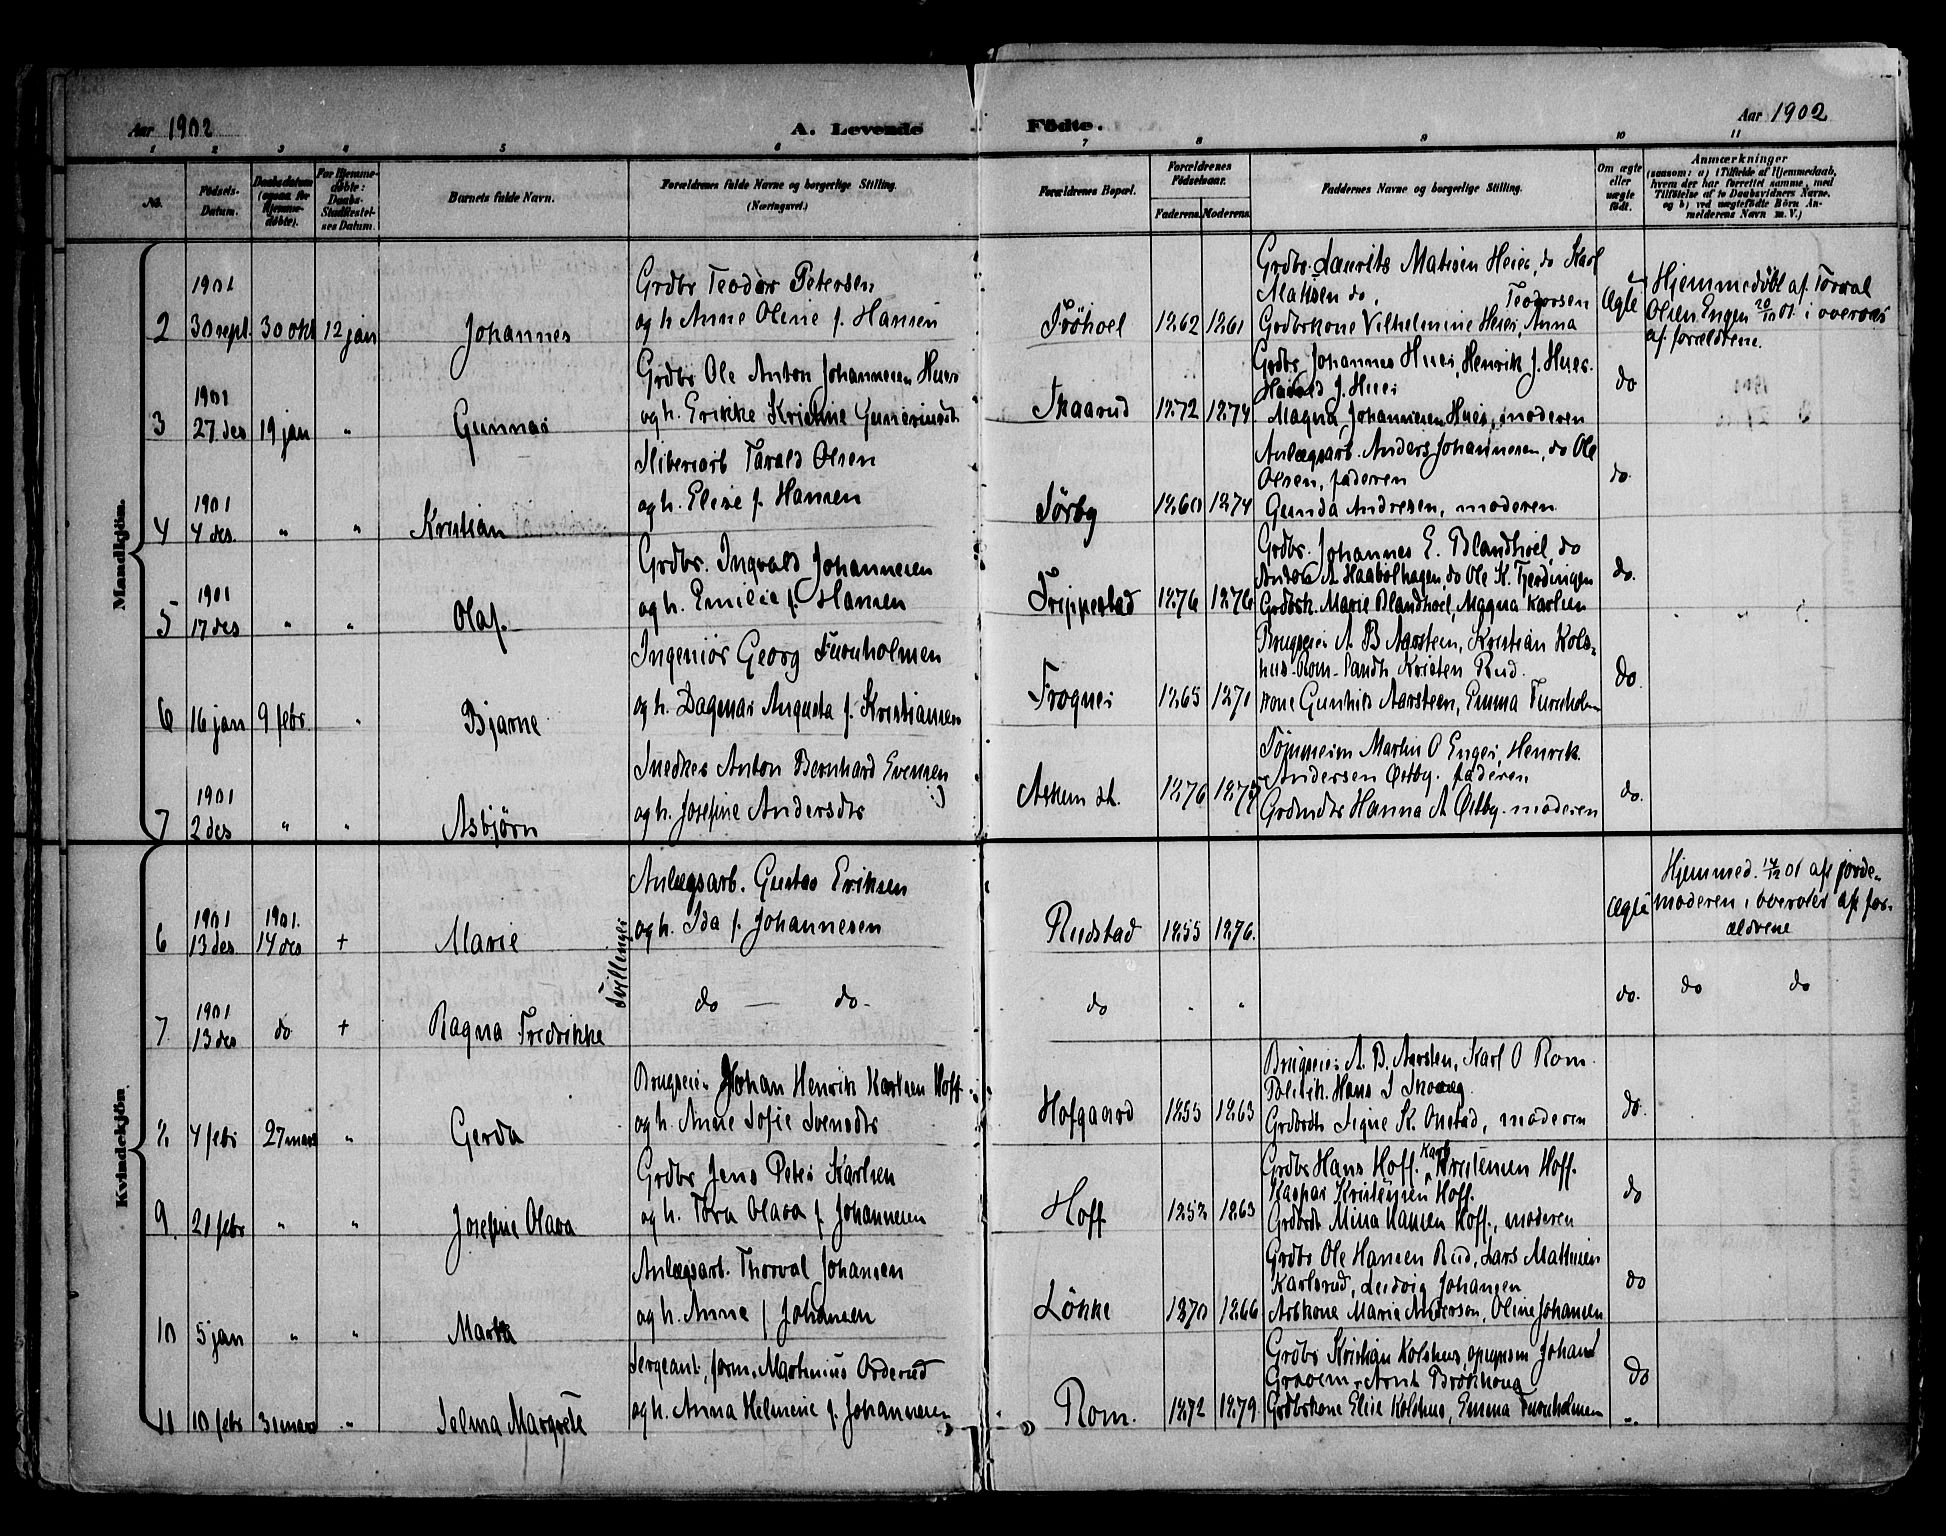 Aar 1902
A. Levende
Födte.
Aar 1902
1 2 3 4 5 6 7 8 9 10 11
No.
Födsels-
Datum.
Daabsdatum
(ogsaa for
Hjemme-
døbte).
For Hjemme-
døbte:
Daabs-
Stadfæstel-
ses Datum.
Barnets fulde Navn.
Forældrenes fulde Navne og borgerlige Stilling.
(Næringsvei.)
Forældrenes Bopæl.
Forældrenes
Fødselsaar.
Faderens. Moderens.
Faddernes Navne og borgerlige Stilling.
Om ægte
eller
uægte
født.
Anmærkninger
(saasom: a) i Tilfælde af Hjemmedaab,
hvem der har forrettet samme, med
Tilføielse af to Daabsvidners Navne,
og b) ved uægtefødte Börn An-
melderens Navn m. V.)
Mandkjön.
2
1901
30 sept.
30 okt
12 jan
Johannes
Grdbr Teodor Petersen
og h. Anne Oline f. Hansen
Fröhoel
1862
1861
Grdbr. Laurits Matisen Heier, do Karl
Matisen do, Teodorsen
Grdbrkone Vilhelmine Heier, Anna
Ægte
Hjemmedöbt af Torval
Olsen Engen 20/10 01 i overvær
af forældrene.
3
1901
27 des
19 jan
"
Gunnar
Grdbr Ole Anton Johannesen Huer
og h. Erikke Kristine Gunerius
Skaarud
1872
1874
Grdbr Johannes Huer, Henrik J. Huer
Harald J. Huer
Magna Johannesen Huer, moderen
do
4
1901
4 des.
"
"
Kristian
Sliberiarb Tarald Olsen
og h. Elise f. Hansen
Sörby
1860
1874
Anlægsarb. Anders Johannesen, do Ole
Olsen, faderen
Gunda Andresen, moderen
do.
5
1901
17 des
"
"
Olaf.
Grdbr. Ingvald Johannesen
og h. Emilie f. Hansen
Frippestad
1876
1876
Grdbr. Johannes E. Blandhoel, do
Anton A Haabolhagen, do Ole K. Tjerdingen
Grdbrk. Marie Blandhoel, Magna Karlsen
do.
6
16 jan
9 febr.
"
Bjarne
Ingeniör Georg Furuholmen
og h. Dagmar Augusta f. Kristiansen
Frogner
1865
1871
Brugseier A B Aarsteen, Kristian Kols-
hus Rom. Landh. Kristen Rud.
kone Gunhild Aarsteen, Emma Furuholm
do.
7
1901
2 des
"
"
Asbjörn
Snedker Anton Bernhard Evensen
og h. Josefine Andersdtr
Askim st.
1876
1875
Tömmerm Martin O Enger, Henrik
Andersen Østby. faderen
Grdmdtr Hanna A Østby. moderen
do.
Kvindekjön
6
1901
13 des
1901.
14 des
+
Marie
Tvillinger
Anlægsarb. Gustav Eriksen
og h. Ida f. Johannesen
Rudstad
1855
1876.
Ægte
Hjemmed. 14/12 01 af jorde-
moderen i overvær af for-
ældrene
7
1901
13 des
do
+
Ragna Fredrikke
do — do
do
"
"
do.
do do
8
4 febr
27 mars
"
Gerda
Brugseier Johan Henrik Karlsen Hoff
og h. Anne Sofie Svensdtr
Hofgaard
1855
1863
Brugseier A. B. Aarsten, Karl O Rom.
Politik. Hans J Skovæg
Grdbrdtr Signe K. Onstad, moderen
do
9.
21 febr
"
"
Josefine Olava
Grdbr Jens Peter Karlsen
og h. Tora Olava f. Johannesen
Hoff
1852
1863
Grdbr Hans Hoff. Karl Kristensen Hoff.
Kaspar Kristensen Hoff.
Grdbrdtr Mina Hansen Hoff, moderen
do
10
5 jan
"
"
Marta
Anlægsarb. Thorval Johansen
og h. Anne f. Johansen
Lökke
1870
1866
Grdbr Ole Hansen Rud, Lars Mathisen
Karlsrud, Ludvig Johansen
Arbkone Marie Andersen, Oline Johansen
do
11
10 febr
31 mars
"
Selma Margrete
Sergeant, form. Martinius Orderud
og h. Anna Helmine f. Johannesen
Rom.
1872
1879.
Grdbr Kristian Kolshus, opsynsm Johan
Gravem, Arnt Bröthoug
Grdbrkone Elise Kolshus, Emma Furuholmen
do
"